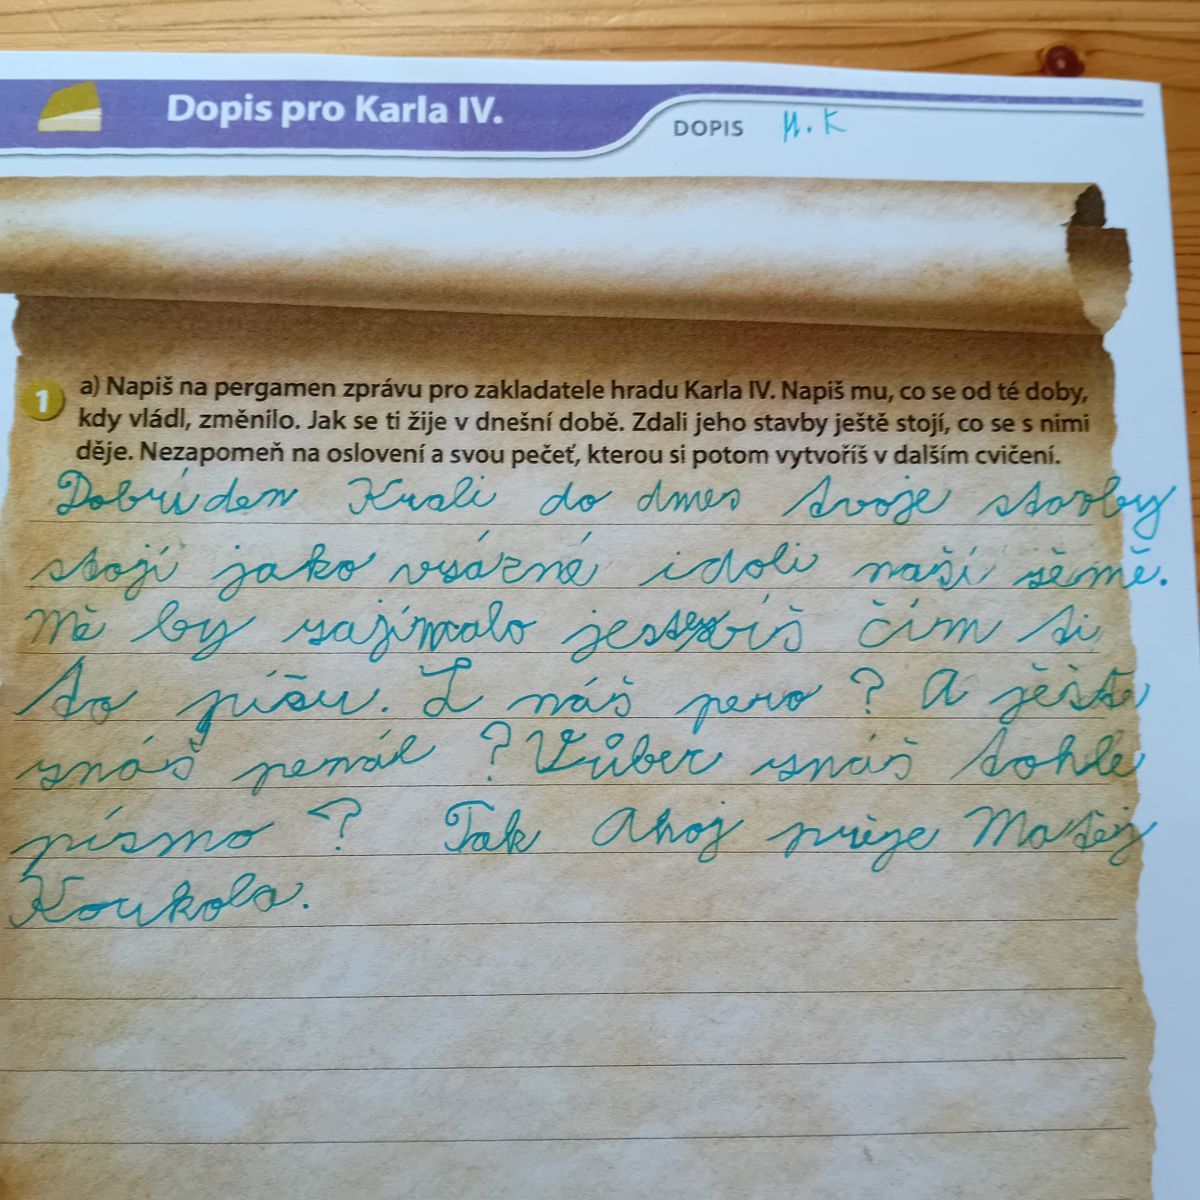 Dopis pro Karla IV.
DOPIS M. K
1 a) Napiš na pergamen zprávu pro zakladatele hradu Karla IV. Napiš mu, co se od té doby,
kdy vládl, změnilo. Jak se ti žije v dnešní době. Zdali jeho stavby ještě stojí, co se s nimi
děje. Nezapomeň na oslovení a svou pečeť, kterou si potom vytvoříš v dalším cvičení.
Dobrý den Krali do dnes tvoje stavby
stojí jako vzázné idoli naší sěmě.
Mě by zajímalo jestli víš čím ti
to píšu. Z náš pero? A ješte
znáš penál? Vůbec znáš tohle
písmo? Tak Ahoj přeje Matěj
Koukola.